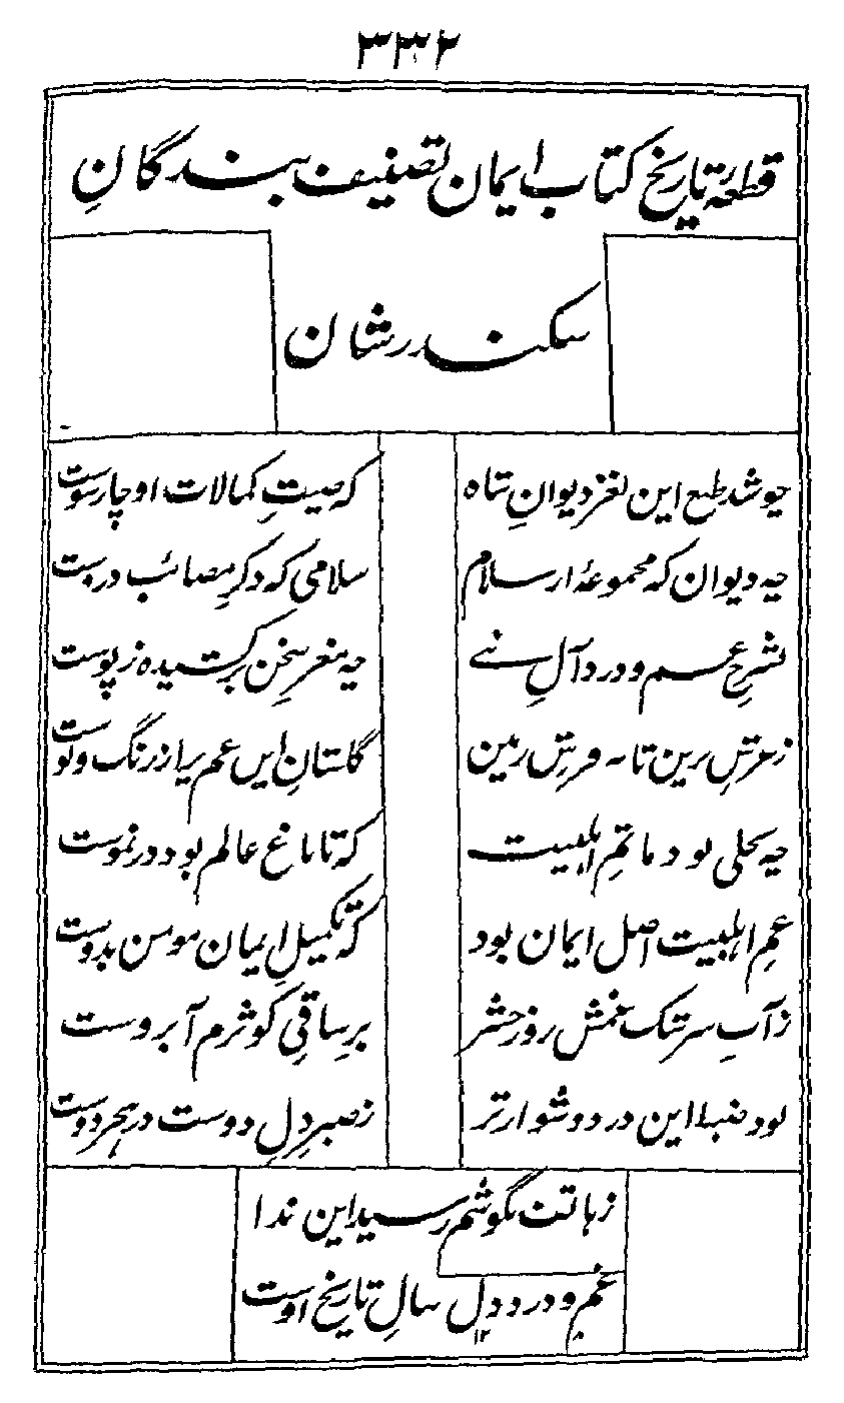 ۳۳۲
قطعہ تاریخ کتاب ایمان تصنیف بندگانِ
سکندر شان
چو شد طبع این نغز دیوانِ شاہ
کہ صیتِ کمالات او چارسوست
چہ دیوان کہ مجموعۂ از سلام
سلامی کہ ذکرِ مصائب دروست
بشرحِ غم و درد آلِ نبے
چہ مغزِ سخن برکشیدہ ز پوست
ز عرشِ برین تا بہ فرشِ زمین
گلستانِ ایں غم پر از رنگ و بوست
چہ نخلی بود ماتمِ اہلبیت
کہ تا باغ عالم بود در نموست
غمِ اہلبیت اصل ایمان بود
کہ تکمیلِ ایمان مومن بدوست
ز آبِ سرشک غمش روز حشر
برِ ساقیِ کوثرم آبروست
بود ضبط این درد دشوار تر
ز صبرِ دلِ دوست در ہجر دوست
ز ہاتف بگوشم رسید این ندا
غم و درد دل سالِ تاریخ اوست
۱۲